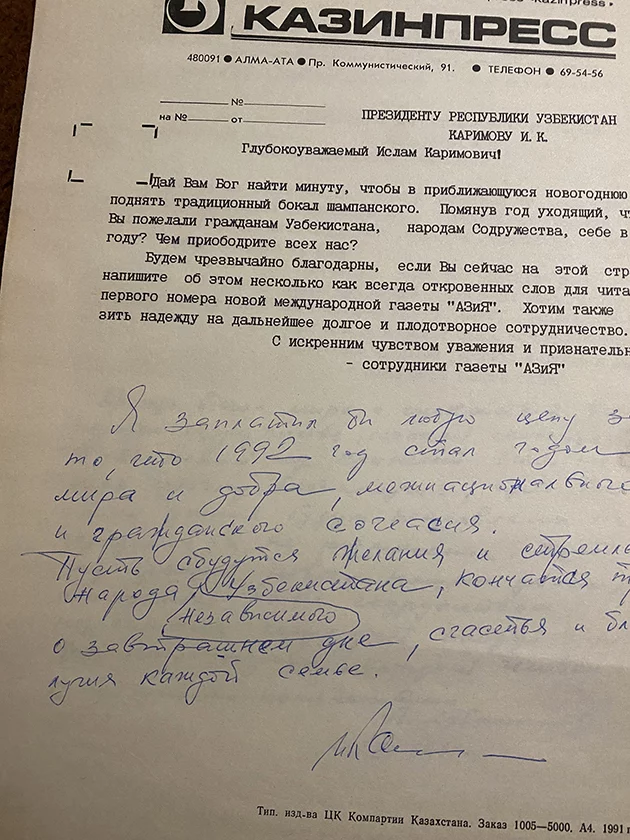 kazinpress •
КАЗИНПРЕСС
480091 ● АЛМА-АТА ● Пр. Коммунистический, 91. ● ТЕЛЕФОН ● 69-54-56
№
на № от
ПРЕЗИДЕНТУ РЕСПУБЛИКИ УЗБЕКИСТАН
КАРИМОВУ И. К.
Глубокоуважаемый Ислам Каримович!
Дай Вам Бог найти минуту, чтобы в приближающуюся новогоднюю
поднять традиционный бокал шампанского. Помянув год уходящий, чт
Вы пожелали гражданам Узбекистана, народам Содружества, себе в
году? Чем приободрите всех нас?
Будем чрезвычайно благодарны, если Вы сейчас на этой стр
напишите об этом несколько как всегда откровенных слов для чита
первого номера новой международной газеты "АЗиЯ". Хотим также
зить надежду на дальнейшее долгое и плодотворное сотрудничество.
С искренним чувством уважения и признательн
- сотрудники газеты "АЗиЯ"
Я заплатил бы любую цену за
то, что 1992 год стал годом
мира и добра, межнационального
и гражданского согласия.
Пусть сбудутся желания и стремле
народа Узбекистана, кончатся тр
независимого
о завтрашнем дне, счастья и бла
лучия каждой семье.
Тип. изд-ва ЦК Компартии Казахстана. Заказ 1005—5000. А4. 1991 г